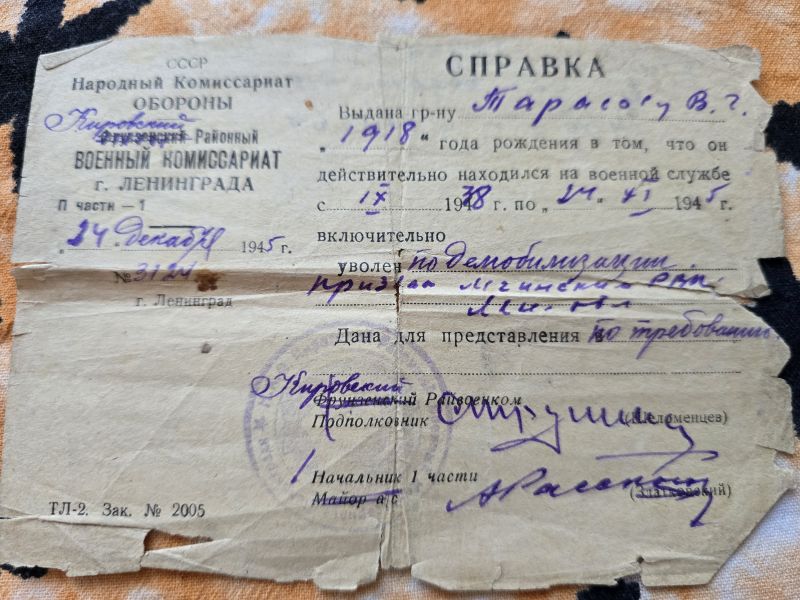 СССР
Народный Комиссариат
ОБОРОНЫ
Кировский
Фрунзенский Районный
ВОЕННЫЙ КОМИССАРИАТ
г. ЛЕНИНГРАДА
П части — 1
„24" декабря 1945 г.
№ 3124
г. Ленинград
СПРАВКА
Выдана гр-ну Тарасову В. Г.
„1918" года рождения в том, что он
действительно находился на военной службе
с IX 1938 г. по „24" XI 1945
включительно
уволен по демобилизации
призван РВК
Дана для представления по требованию
Кировский
Фрунзенский Райвоенком
Подполковник (Коломенцев)
Начальник 1 части
Майор а/с (Златковский)
ТЛ-2. Зак. № 2005